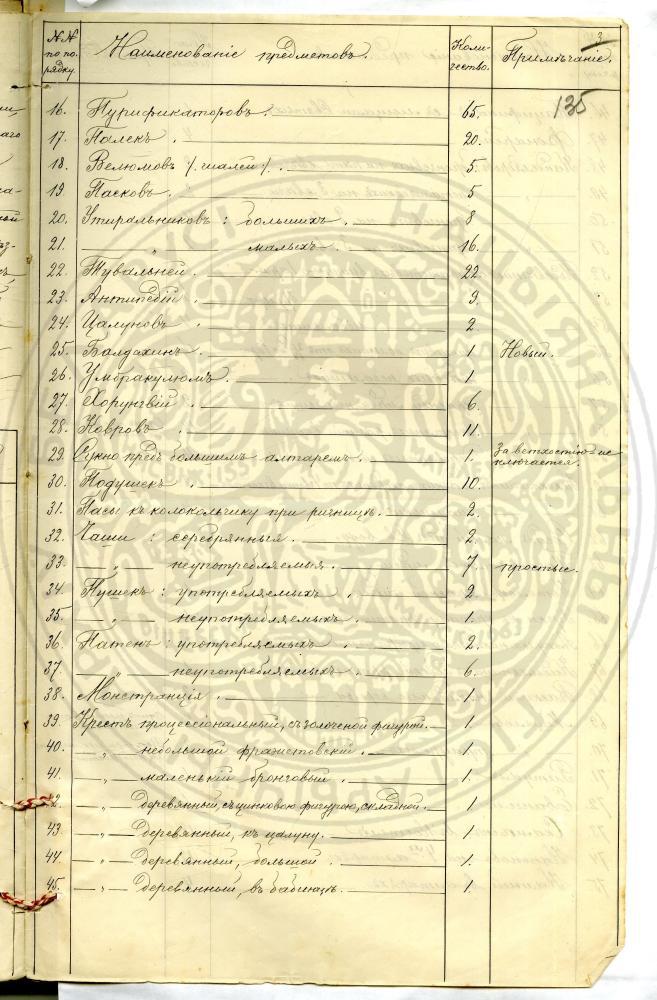 №№ по порядку. Наименованіе предметовъ. Количество. Примѣчаніе.
3
135
16. Пурификаторовъ. 65.
17. Палекъ. 20.
18. Велюмовъ /: шалей :/. 5.
19. Пасковъ. 5
20. Утиральниковъ: большихъ. 8
21. " малыхъ. 16.
22. Тувальней. 22.
23. Антипедій. 9.
24. Цалуновъ. 2.
25. Балдахинъ. 1. Новый.
26. Умбракулюмъ. 1.
27. Хорунгвій. 6.
28. Ковровъ. 11.
29. Сукно предъ большимъ алтаремъ. 1. За ветхостію ис
ключается.
30. Подушекъ. 10.
31. Пасы къ колокольчику при ризницѣ. 2.
32. Чаши: серебрянныя. 2.
33. —„— неупотребляемыя. 7. простые.
34. Пушекъ: употребляемыхъ. 2
35. —„— неупотребляемыхъ. 1.
36. Патенъ: употребляемыхъ. 2.
37. —„— неупотребляемыхъ. 6.
38. Монстранція. 1.
39. Крестъ процессіональный, съ золоченой фигурой. 1
40. —„— небольшой фражетовскій. 1.
41. —„— маленькій бронзовый. 1.
42. —„— деревянный, съ цинковою фигурою, складной. 1
43. —„— деревянный, къ цалуну. 1.
44. —„— деревянный, большой. 1.
45. —„— деревянный, въ бабинцѣ. 1.